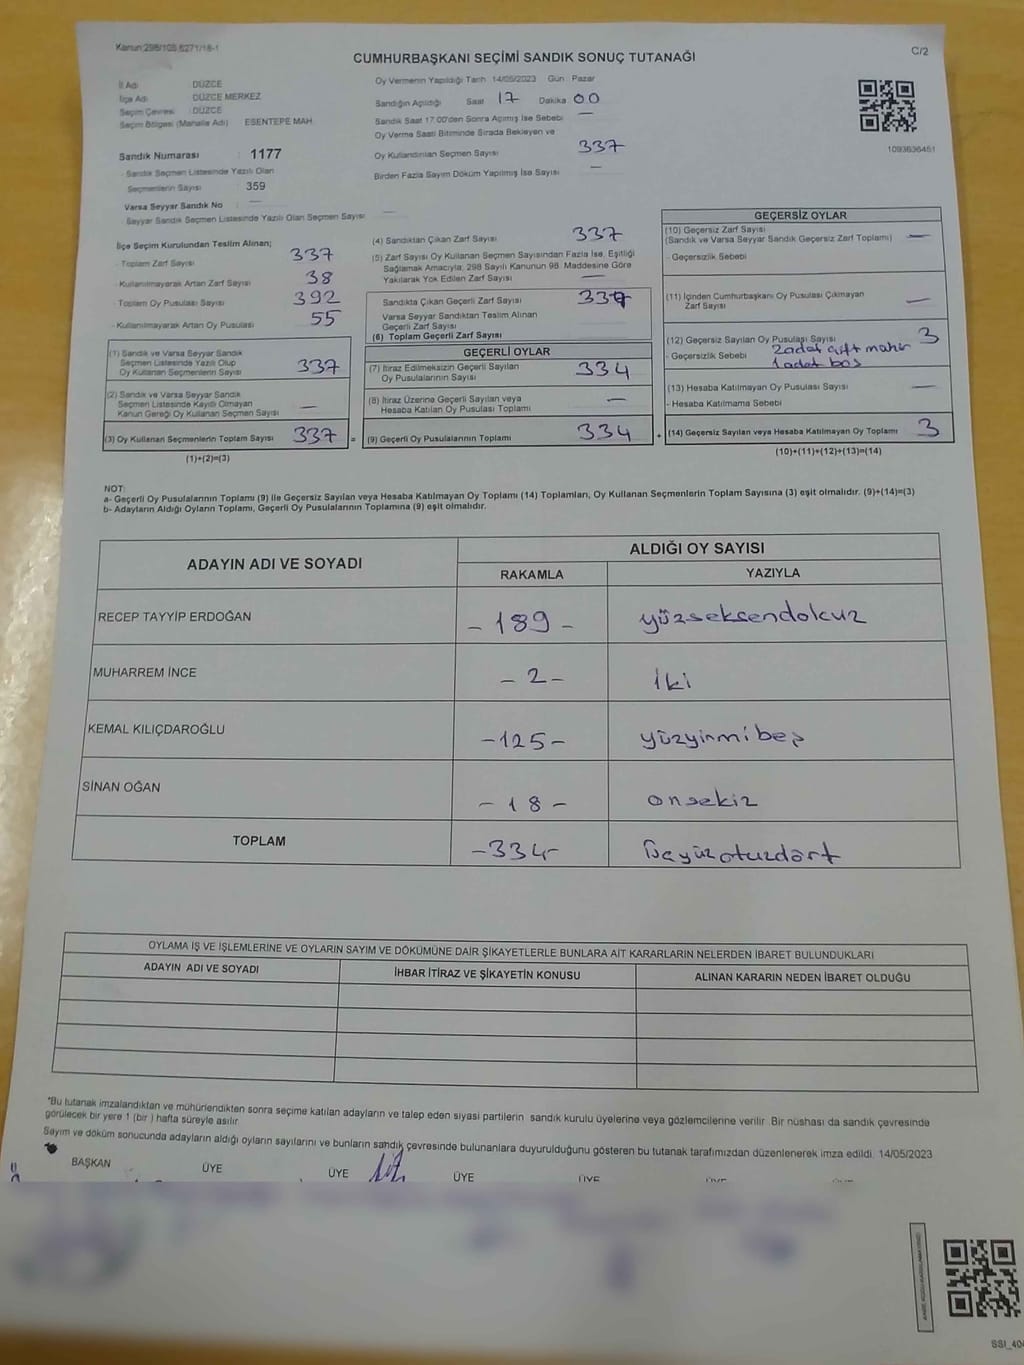 Kanun:298/105,6271/18-1
C/2
CUMHURBAŞKANI SEÇİMİ SANDIK SONUÇ TUTANAĞI
İl Adı : DÜZCE
İlçe Adı : DÜZCE MERKEZ
Seçim Çevresi : DÜZCE
Seçim Bölgesi (Mahalle Adı) ESENTEPE MAH.
Sandık Numarası : 1177
- Sandık Seçmen Listesinde Yazılı Olan
Seçmenlerin Sayısı : 359
Varsa Seyyar Sandık No : —
- Seyyar Sandık Seçmen Listesinde Yazılı Olan Seçmen Sayısı : —
Oy Vermenin Yapıldığı Tarih 14/05/2023 Gün : Pazar
Sandığın Açıldığı Saat 17 Dakika 00
Sandık Saat 17:00'den Sonra Açılmış İse Sebebi —
Oy Verme Saati Bitiminde Sırada Bekleyen ve
Oy Kullandırılan Seçmen Sayısı 337
Birden Fazla Sayım Döküm Yapılmış İse Sayısı —
1093636451
İlçe Seçim Kurulundan Teslim Alınan;
- Toplam Zarf Sayısı 337
- Kullanılmayarak Artan Zarf Sayısı 38
- Toplam Oy Pusulası Sayısı 392
- Kullanılmayarak Artan Oy Pusulası 55
(1) Sandık ve Varsa Seyyar Sandık
Seçmen Listesinde Yazılı Olup
Oy Kullanan Seçmenlerin Sayısı 337
(2) Sandık ve Varsa Seyyar Sandık
Seçmen Listesinde Kayıtlı Olmayan
Kanun Gereği Oy Kullanan Seçmen Sayısı —
(3) Oy Kullanan Seçmenlerin Toplam Sayısı 337 =
(1)+(2)=(3)
(4) Sandıktan Çıkan Zarf Sayısı 337
(5) Zarf Sayısı Oy Kullanan Seçmen Sayısından Fazla İse, Eşitliği
Sağlamak Amacıyla; 298 Sayılı Kanunun 98. Maddesine Göre
Yakılarak Yok Edilen Zarf Sayısı —
Sandıkta Çıkan Geçerli Zarf Sayısı 337
Varsa Seyyar Sandıktan Teslim Alınan
Geçerli Zarf Sayısı
(6) Toplam Geçerli Zarf Sayısı
GEÇERLİ OYLAR
(7) İtiraz Edilmeksizin Geçerli Sayılan
Oy Pusulasının Sayısı 334
(8) İtiraz Üzerine Geçerli Sayılan veya
Hesaba Katılan Oy Pusulası Toplamı —
(9) Geçerli Oy Pusulalarının Toplamı 334 +
GEÇERSİZ OYLAR
(10) Geçersiz Zarf Sayısı
(Sandık ve Varsa Seyyar Sandık Geçersiz Zarf Toplamı) —
- Geçersizlik Sebebi
(11) İçinden Cumhurbaşkanı Oy Pusulası Çıkmayan
Zarf Sayısı —
(12) Geçersiz Sayılan Oy Pusulası Sayısı 3
- Geçersizlik Sebebi 2 adet çift mühür
1 adet boş
(13) Hesaba Katılmayan Oy Pusulası Sayısı —
- Hesaba Katılmama Sebebi
(14) Geçersiz Sayılan veya Hesaba Katılmayan Oy Toplamı 3
(10)+(11)+(12)+(13)=(14)
NOT:
a- Geçerli Oy Pusulalarının Toplamı (9) ile Geçersiz Sayılan veya Hesaba Katılmayan Oy Toplamı (14) Toplamları, Oy Kullanan Seçmenlerin Toplam Sayısına (3) eşit olmalıdır. (9)+(14)=(3)
b- Adayların Aldığı Oyların Toplamı, Geçerli Oy Pusulalarının Toplamına (9) eşit olmalıdır.
ADAYIN ADI VE SOYADI
ALDIĞI OY SAYISI
RAKAMLA YAZIYLA
RECEP TAYYİP ERDOĞAN - 189 - yüzseksendokuz
MUHARREM İNCE - 2 - iki
KEMAL KILIÇDAROĞLU - 125 - yüzyirmibeş
SİNAN OĞAN - 18 - onsekiz
TOPLAM - 334 - üçyüzotuzdört
OYLAMA İŞ VE İŞLEMLERİNE VE OYLARIN SAYIM VE DÖKÜMÜNE DAİR ŞİKAYETLERLE BUNLARA AİT KARARLARIN NELERDEN İBARET BULUNDUKLARI
ADAYIN ADI VE SOYADI İHBAR İTİRAZ VE ŞİKAYETİN KONUSU ALINAN KARARIN NEDEN İBARET OLDUĞU
*Bu tutanak imzalandıktan ve mühürlendikten sonra seçime katılan adayların ve talep eden siyasi partilerin sandık kurulu üyelerine veya gözlemcilerine verilir. Bir nüshası da sandık çevresinde
görülecek bir yere 1 (bir) hafta süreyle asılır.
Sayım ve döküm sonucunda adayların aldığı oyların sayılarını ve bunların sandık çevresinde bulunanlara duyurulduğunu gösteren bu tutanak tarafımızdan düzenlenerek imza edildi. 14/05/2023
BAŞKAN ÜYE ÜYE ÜYE ÜYE